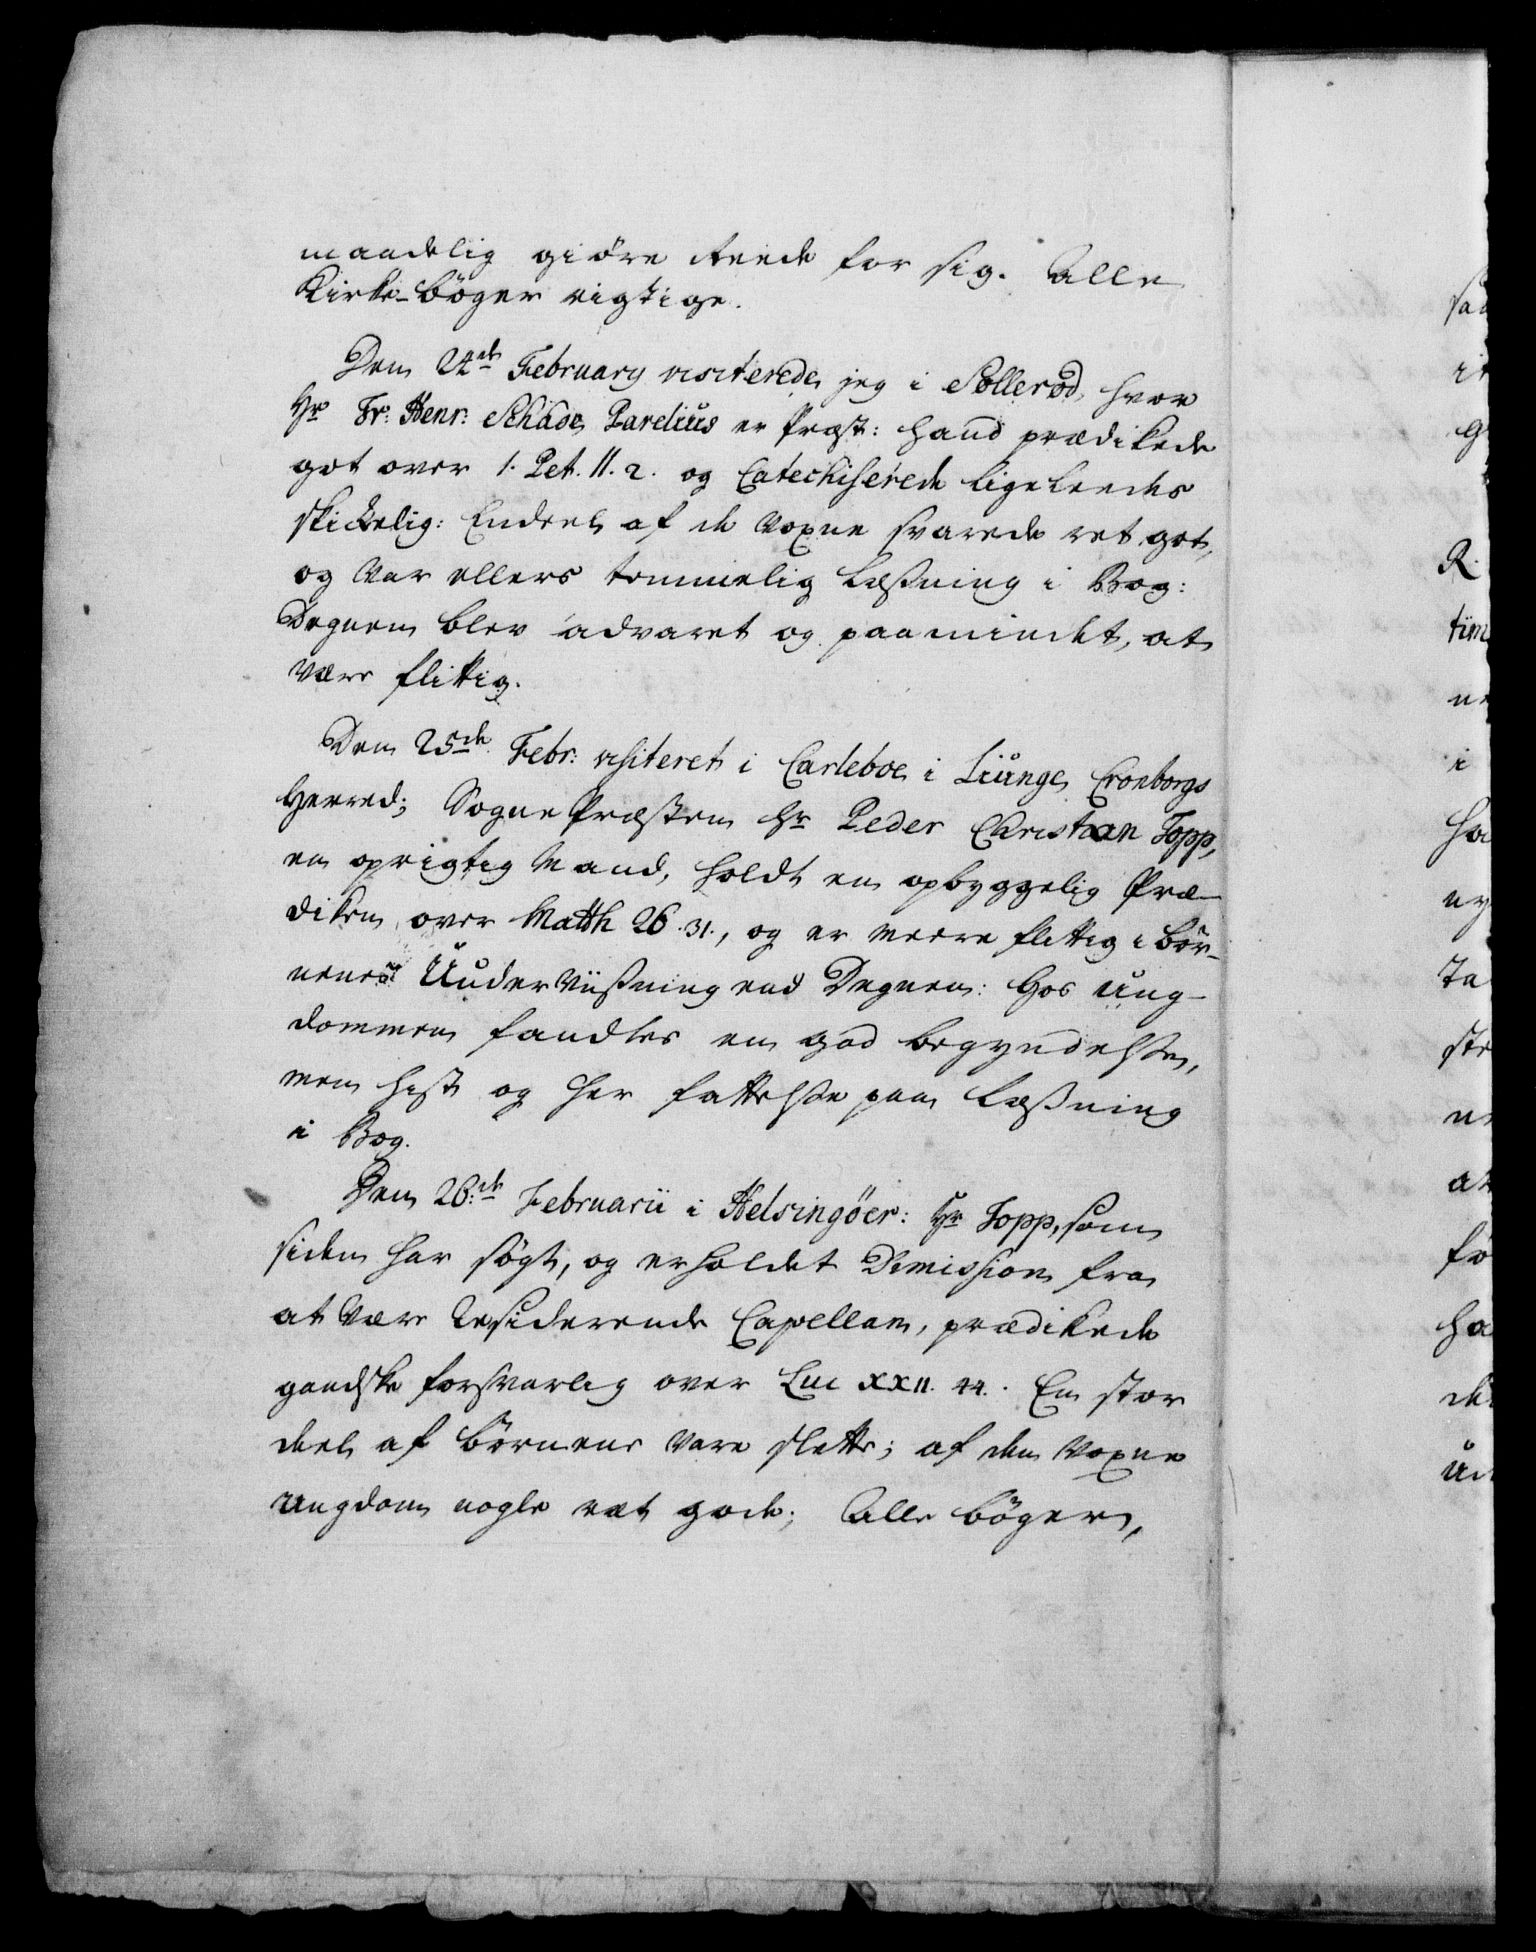 maadelig giöre Reede for sig. Alle
Kirke-bøger rigtige.
Den 24de February visiterede jeg i Søllerød, hvor
Hr Fr: Henr: Schade Parelius er Præst: hand prædikede
got over 1. Pet. II. 2. og Catechiserede ligeleedes
skickelig: Endeel af de Voxne svarede ret got,
og var ellers temmelig Læsning i Bog:
Degnen blev advaret og paamindt, at
være flittig.
Den 25de Febr: visiteret i Carleboe i Liunge Cronborgs
Herred; Sogne Præsten Hr Peder Christian Topp,
en oprigtig Mand, holdt en opbyggelig Præ-
diken over Matth 26.31., og er meere flittig i Bør-
nenes UnderViisning end Degnen: Hos Ung-
dommen fandtes en god begyndelse,
men hist og her fattelse paa Læsning
i Bog.
Den 26.de Februarii i Helsingöer: Hr Topp, som
siden har søgt, og erholdet Dimission fra
at være Residerende Capellan, prædikede
gandske forsvarlig over Luc XXII. 44. En stor
deel af Børnene vare slette; af den Voxne
Ungdom nogle ret gode; Alle bøger,